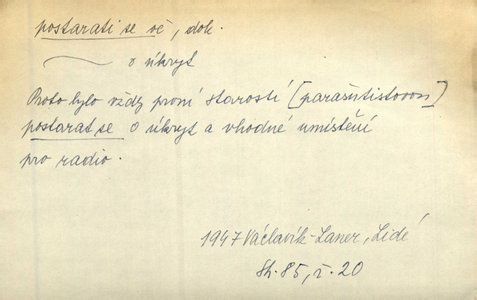 postarati se oč, dok.
o úkryt
Proto bylo vždy první starostí [parašutistovou]
postarat se o úkryt a vhodné umístění
pro radio.
1947 Václavík-Laner, Lidé
Sh. 85, ř. 20